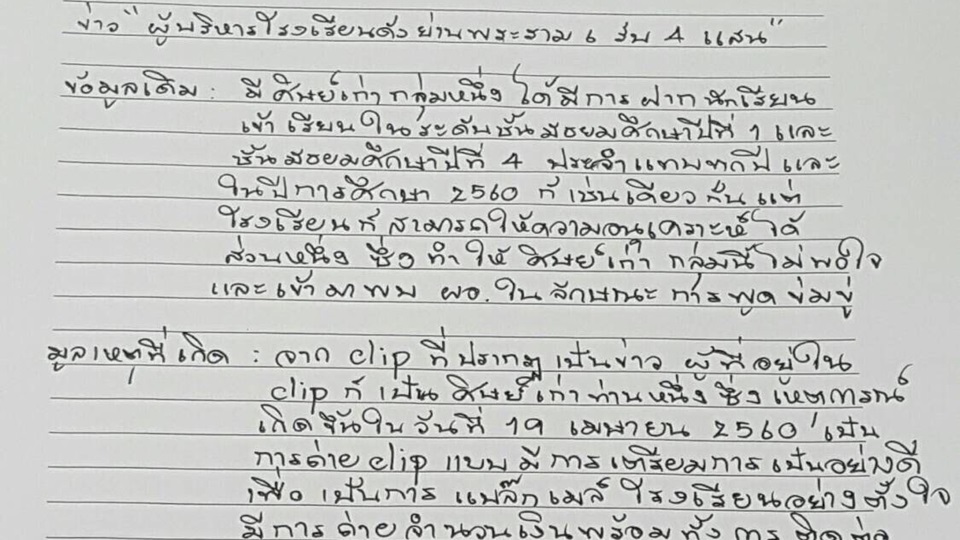 ข่าว "ผู้บริหารโรงเรียนดังย่านพระราม 6 รับ 4 แสน"
ข้อมูลเดิม : มีศิษย์เก่ากลุ่มหนึ่ง ได้มีการฝากนักเรียน
เข้าเรียนในระดับชั้นมัธยมศึกษาปีที่ 1 และ
ชั้นมัธยมศึกษาปีที่ 4 ประจำแทบทุกปี และ
ในปีการศึกษา 2560 ก็เช่นเดียวกันแต่
โรงเรียนก็สามารถให้ความอนุเคราะห์ได้
ส่วนหนึ่ง ซึ่งทำให้ศิษย์เก่ากลุ่มนี้ไม่พอใจ
และเข้ามาพบ ผอ. ในลักษณะการพูดข่มขู่
มูลเหตุที่เกิด : จาก clip ที่ปรากฏเป็นข่าว ผู้ที่อยู่ใน
clip ก็เป็นศิษย์เก่าท่านหนึ่ง ซึ่งเหตุการณ์
เกิดขึ้นในวันที่ 19 เมษายน 2560 เป็น
การถ่าย clip แบบมีการเตรียมการเป็นอย่างดี
เพื่อเป็นการแบล็กเมล์โรงเรียนอย่างตั้งใจ
มีการถ่ายจำนวนเงินพร้อมทั้งการติดต่อ